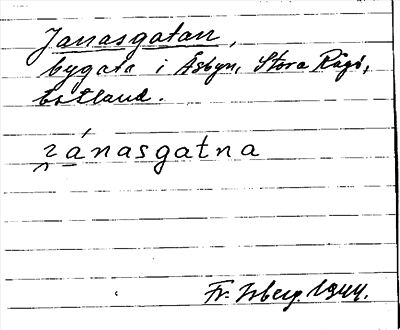 Janasgatan,
bygata i Åsbyn, Stora Rågö,
Estland.
ɿánasgatna
Fr. Isberg 1944.